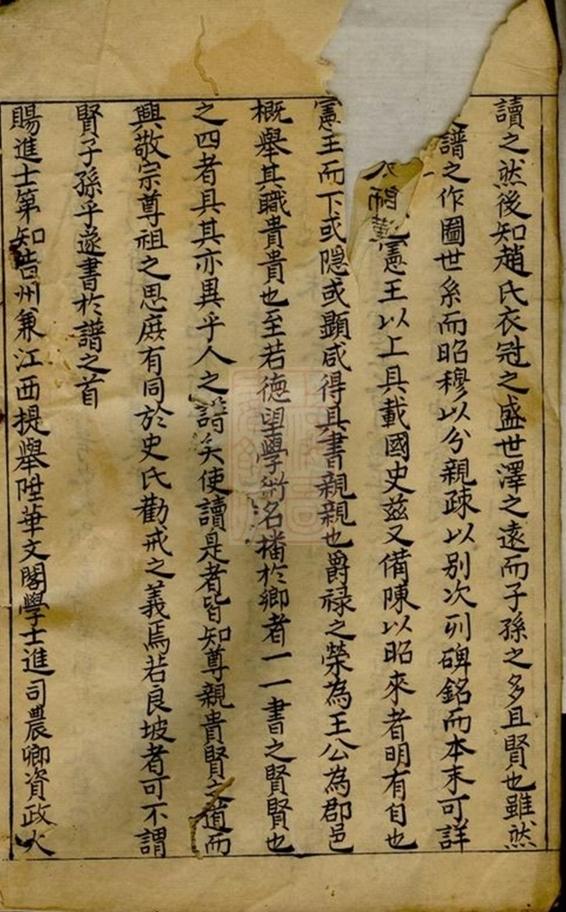 讀之然後知趙氏衣冠之盛世澤之遠而子孫之多且賢也雖然
譜之作圖世系而昭穆以分親疎以别次列碑銘而本末可詳
憲王以上具載國史茲又備陳以昭來者明有自也
憲王而下或隠或顯咸得具書親親也爵禄之榮為王公為郡邑
概舉其職貴貴也至若德望學術名播於鄉者一一書之賢賢也
之四者具其亦異乎人之譜矣使讀是者皆知尊親貴賢之道而
興敬宗尊祖之思庶有同於史氏勸戒之義焉若良坡者可不謂
賢子孫乎遂書於譜之首
賜進士第知吉州兼江西提舉陞華文閣學士進司農卿資政大